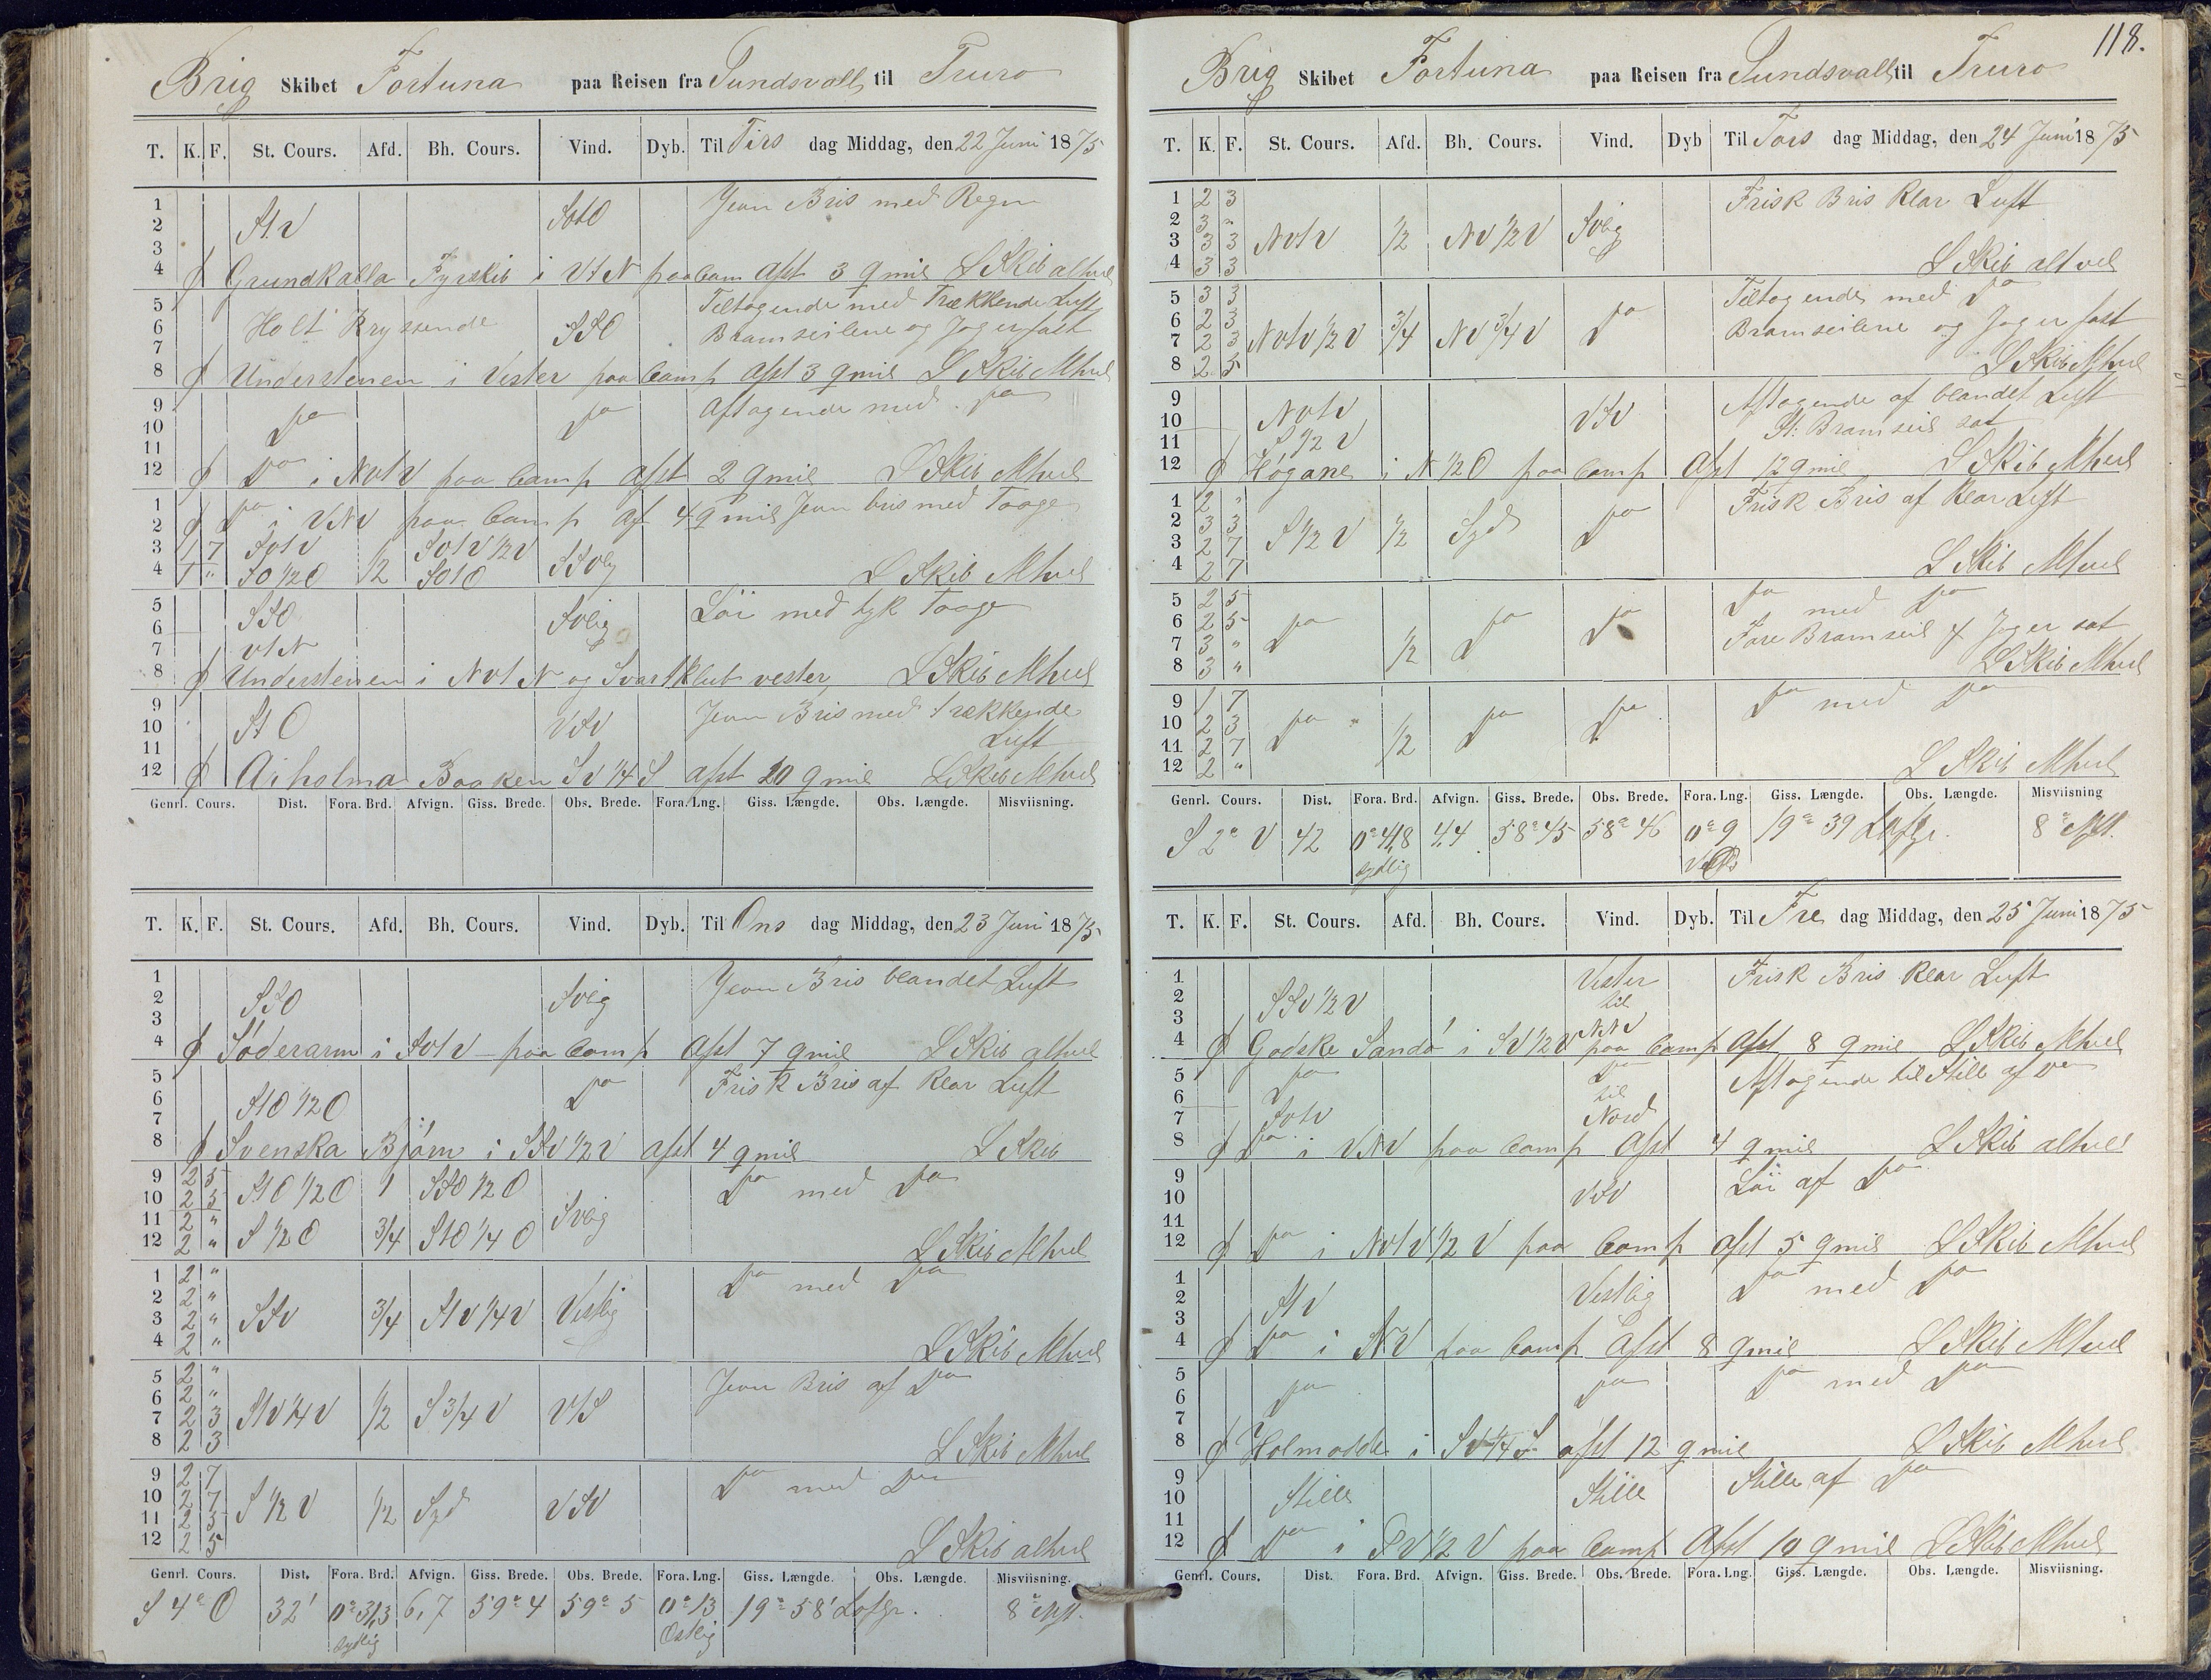 Brig Skibet Fortuna paa Reisen fra Sundsvall til Truro
T. K. F. St. Cours. Afd. Bh. Cours. Vind. Dyb. Til Tirs dag Middag, den 22 Juni 1875
1 Jevn Bris med Regn
2 StV SotO
3
4 Grundkalla Fyrskib i VtN paa Comp Afst 3 qmil L Skib altvel
5 Tiltagende med Trækkende Luft
6 Holt Kryssende SSO Bramseilene og Jager fast
7
8 Understenen i Vester paa Comp Afst 3 qmil L Skib Altvel
9 Do Do Aftagende med Do
10
11
12 Do i NotV paa Comp Afst 2 qmil L Skib Altvel
1 Do i VNV paa Comp Af 4 qmil Jevn bris med Taage
2
3 1 7 SotV 1/2 SotV 1/2 V SSOlig
4 1 " SO 1/2 O SOtO L Skib Altvel
5 SSO Solig Løi med tyk Taage
6
7 VtN
8 Understenen i NotN og Svartklub vester L Skib Altvel
9 Jevn Bris med trækkende
10 StO VSV Luft
11
12 Aiholma Baaken SV 1/4 S afst 20 qmil L Skib Altvel
Genrl. Cours. Dist. Fora. Brd. Afvign. Giss. Brede. Obs. Brede. Fora. Lng. Giss. Længde. Obs. Længde. Misviisning.
T. K. F. St. Cours. Afd. Bh. Cours. Vind. Dyb. Til Ons dag Middag, den 23 Juni 1875
1 Jevn Bris blandet Luft
2 SSO
3
4 Söderarm i SotV paa Comp Afst 7 qmil L Skib altvel
5 Do Frisk Bris af Klar Luft
6 StO 1/2 O
7
8 Svenska Björn i SSV 1/2 V afst 4 qmil L Skib
9 2 5 StO 1/2 O 1 SSO 1/2 O Do med Do
10 2 3
11 2 "
12 2 " S 1/2 O 3/4 StO 1/4 O L Skib Altvel
1 2 " Do med Do
2 2 "
3 2 " SSV 3/4 StV 1/4 V Vestlig
4 2 " L Skib Altvel
5 2 " Jevn Bris af Do
6 2 "
7 2 3 StV 1/4 V 1/2 S 3/4 V VtS
8 2 3 L Skib Altvel
9 2 7 Do med Do
10 2 7 S 1/2 V 1/2 Syd VSV
11 2 5
12 2 5 L Skib altvel
Genrl. Cours. Dist. Fora. Brd. Afvign. Giss. Brede. Obs. Brede. Fora. Lng. Giss. Længde. Obs. Længde. Misviisning.
S 4° O 32' 0° 31,3 6,7 59° 4 59° 5 0° 13 19° 58'
sydlig Østlig
118.
Brig Skibet Fortuna paa Reisen fra Sundsvall til Truro
T. K. F. St. Cours. Afd. Bh. Cours. Vind. Dyb Til Tors dag Middag, den 24 Juni 1875
1 2 3 Frisk Bris Klar Luft
2 3 "
3 3 3 NotV 1/2 NV 1/2 V
4 3 3 L Skib alt vel
5 3 3 Tiltagende med Do
6 2 3 Bramseilene og Jager fast
7 2 3 NotV 1/2 V 3/4 NV 3/4 V Do
8 2 5 L Skib Altvel
9 Aftagende af blandet Luft
10 NotV VSV St: Bramseil sat
11 S 1/2 V
12 Högane i N 1/2 O paa Comp Afst 12 qmil L Skib Altvel
1 2 " Frisk Bris af Klar Luft
2 3 3 S 1/2 V 1/2 Syd Do
3 2 7
4 2 7 L Skib Altvel
5 2 5 Do med Do
6 2 5 Do Do Do Fore Bramseil & Jager sat
7 3 " 1/2
8 3 " L Skib Altvel
9 1 7 Do med Do
10 2 3 Do Do Do
11 2 7 1/2
12 2 " L Skib Altvel
Genrl. Cours. Dist. Fora. Brd. Afvign. Giss. Brede. Obs. Brede. Fora. Lng. Giss. Længde. Obs. Længde. Misviisning
S 2° V 42 0° 41,8 4,4 58° 45 58° 46 0° 9 19° 39
sydlig
T. K. F. St. Cours. Afd. Bh. Cours. Vind. Dyb. Til Fre dag Middag, den 25 Juni 1875
1 Vester Frisk Bris klar Luft
2 SSV 1/2 V til
3 NNV
4 Godske Sandö i SV 1/2 V paa Comp Afst 8 qmil L Skib Altvel
5 Do Do Aftagende til Stille af Do
6 til
7 SotV Nord
8 Do i VNV paa Comp Afst 4 qmil L Skib altvel
9 Løi af Do
10 VSV
11
12 Do i NotV 1/2 V paa Comp Afst 5 qmil L Skib Altvel
1 Vestlig Do med Do
2 StV
3
4 Do i NV paa Comp Afst 8 qmil L Skib Altvel
5 Do Do Do med Do
6
7
8 Holmodde i SV 1/4 S afst 12 qmil L Skib Altvel
9 Stille af Do
10 Stille Stille
11
12 Do i SV 1/2 V paa Comp Afst 10 qmil L Skib Altvel
Genrl. Cours. Dist. Fora. Brd. Afvign. Giss. Brede. Obs. Brede. Fora. Lng. Giss. Længde. Obs. Længde. Misviisning.